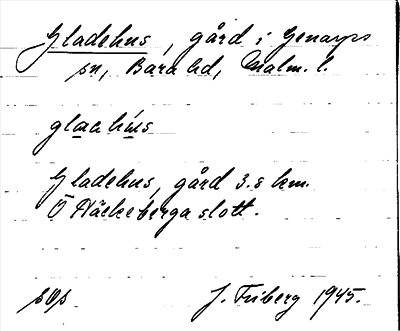 Gladehus, gård i Genarps
sn, Bara hd, Malm. l.
glaahus
Gladehus, gård 3.8 km.
Ö Häckeberga slott.
J. Friberg 1945.